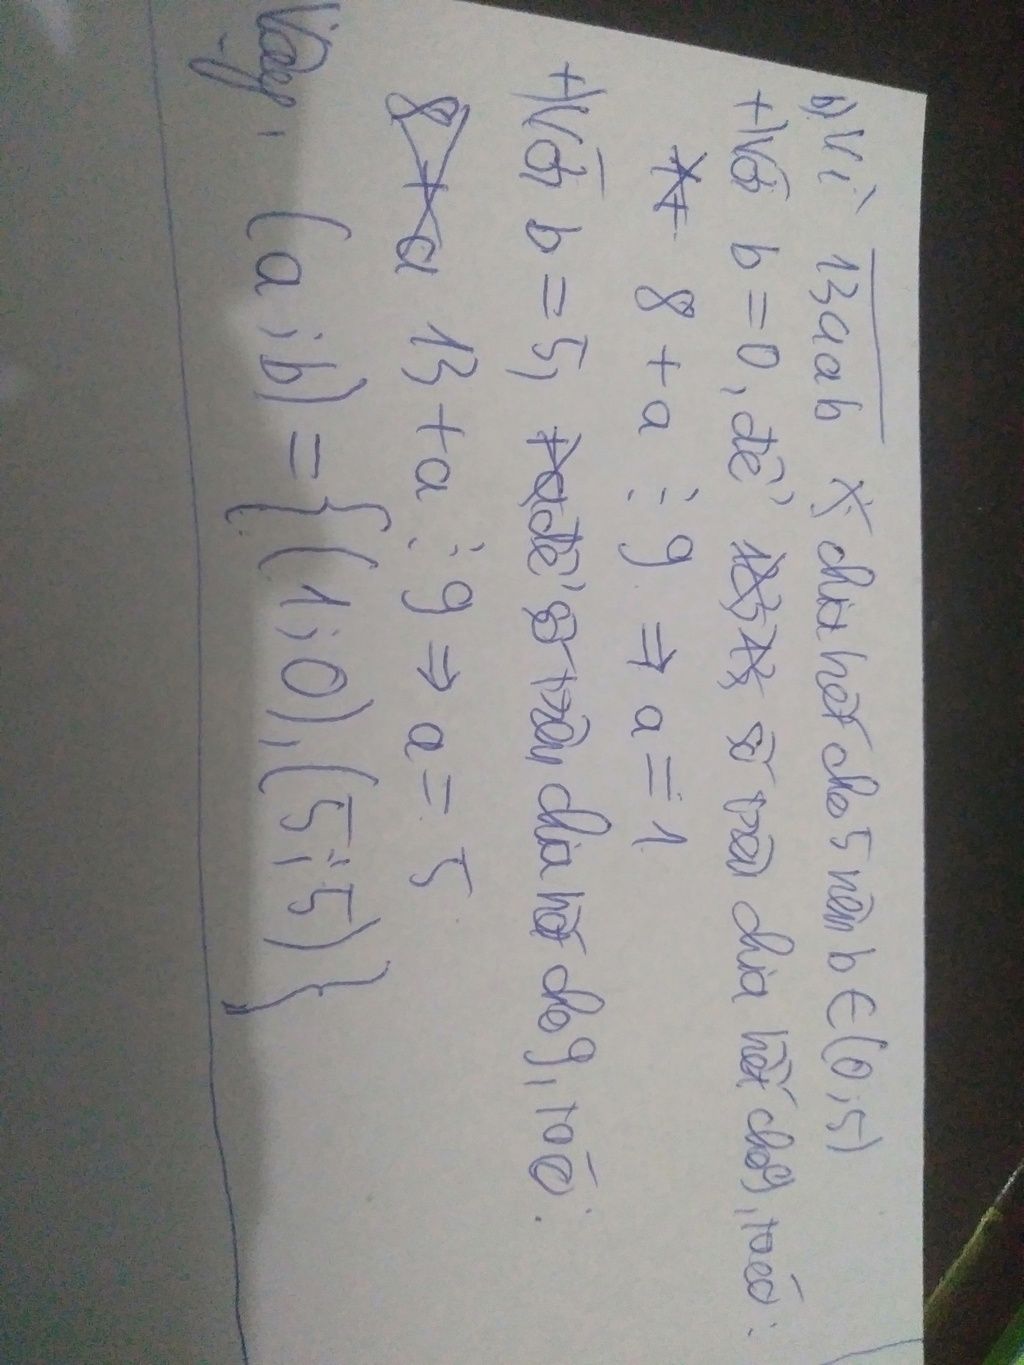 b) Vì 13aab chia hết cho 5 nên b ∈ (0;5)
+) Với b = 0, để số trên chia hết cho 9, ta có:
8 + a ⋮ 9 ⇒ a = 1
+) Với b = 5, để số trên chia hết cho 9, ta có:
13 + a ⋮ 9 ⇒ a = 5
Vậy, (a;b) = {(1;0),(5;5)}